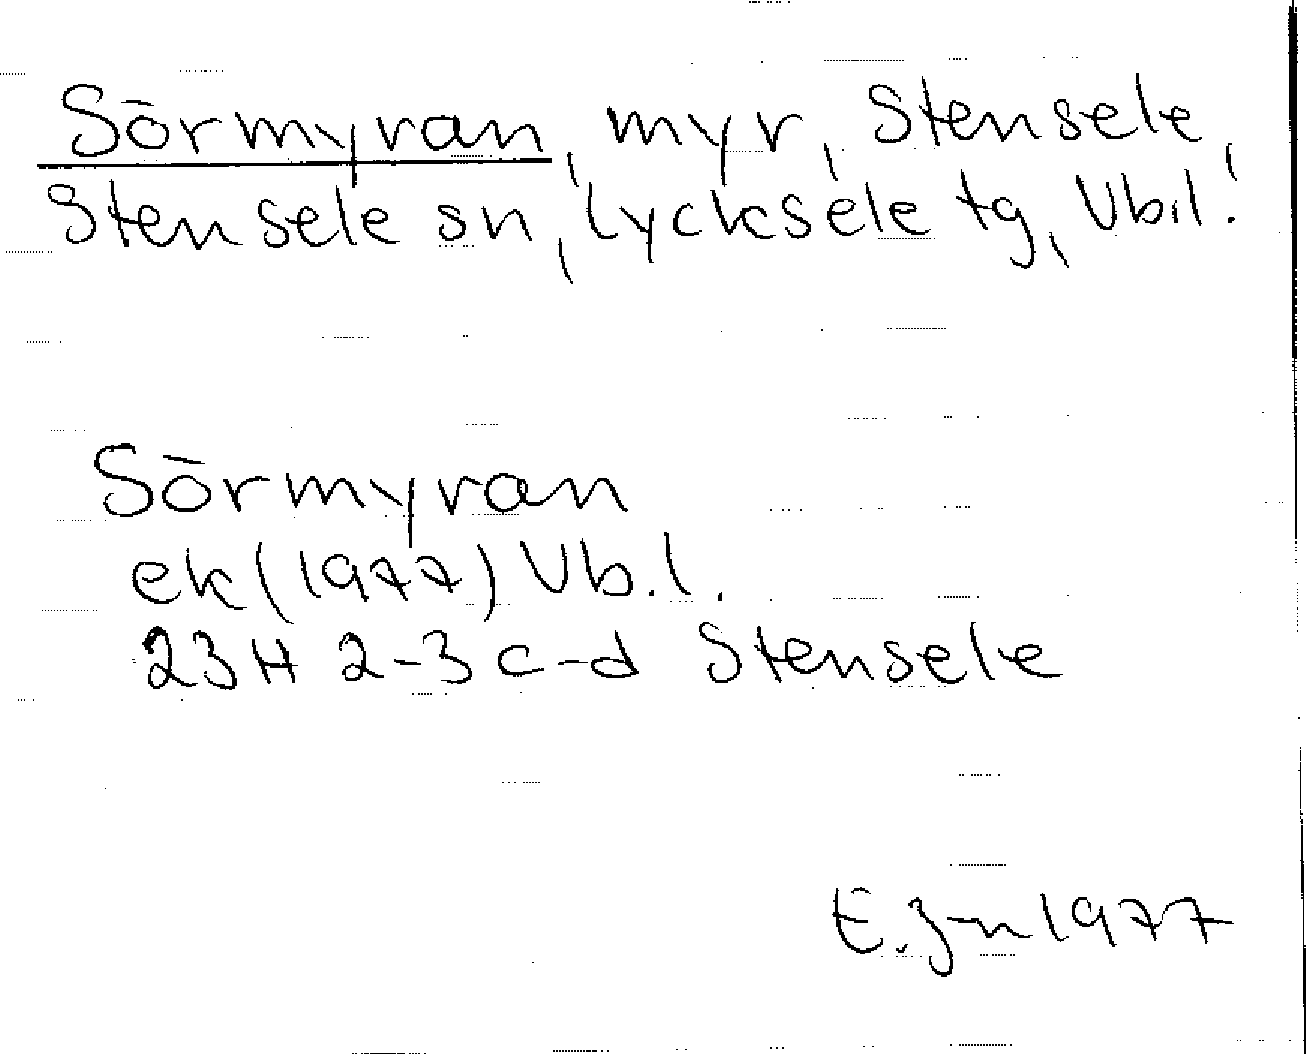 Sörmyran, myr, Stensele,
Stensele sn, Lycksele tg, Vb.l.
Sörmyran
ek (1977) Vb.l.
23H 2-3 c-d Stensele
E.J-n 1977